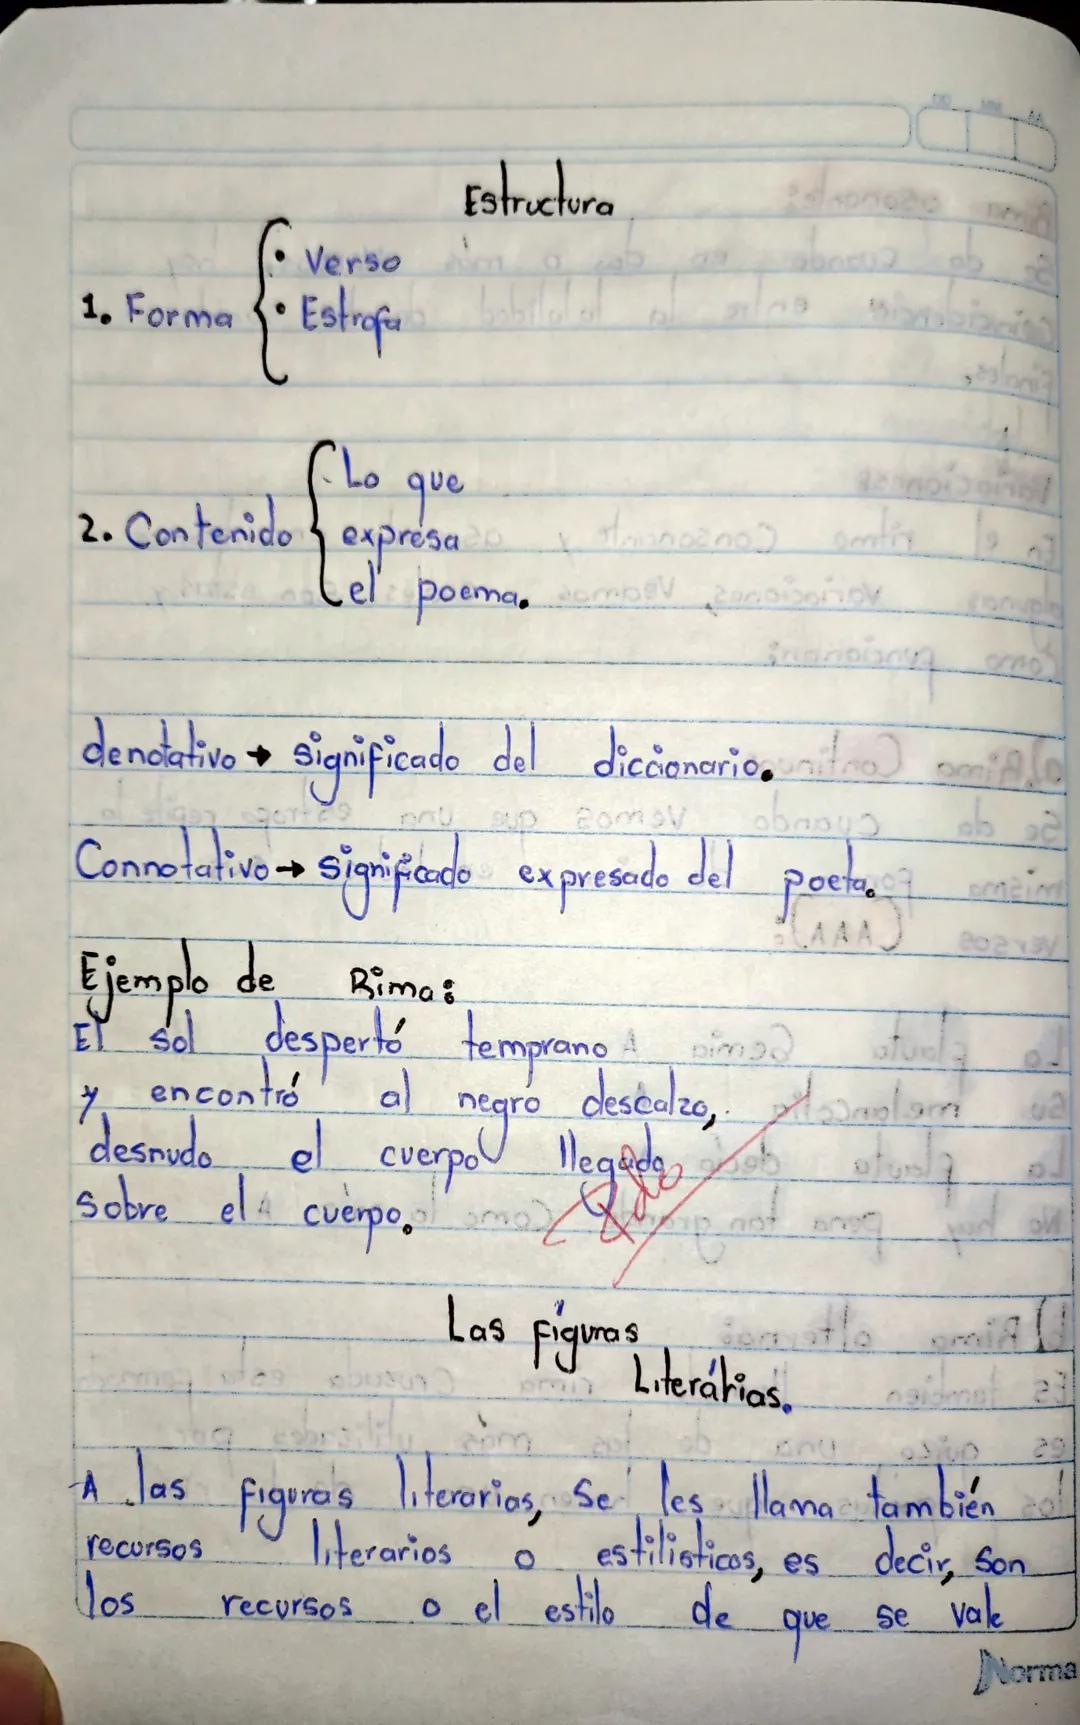 Estructura
1. Forma
• Verso
• Estrofa
2. Contenido
Lo que
expresa
el poema.
denotativo → significado del diccionario.
Connotativo → significado expresado del poeta.
Ejemplo de Rima:
El sol despertó temprano
y encontró al negro descalzo,
desnudo el cuerpo llegado
sobre el cuerpo.
Las figuras
Literárias.
A las figuras literarias, se les llama también
recursos literarios o estilisticos, es decir, son
los recursos o el estilo de que se vale
Norma